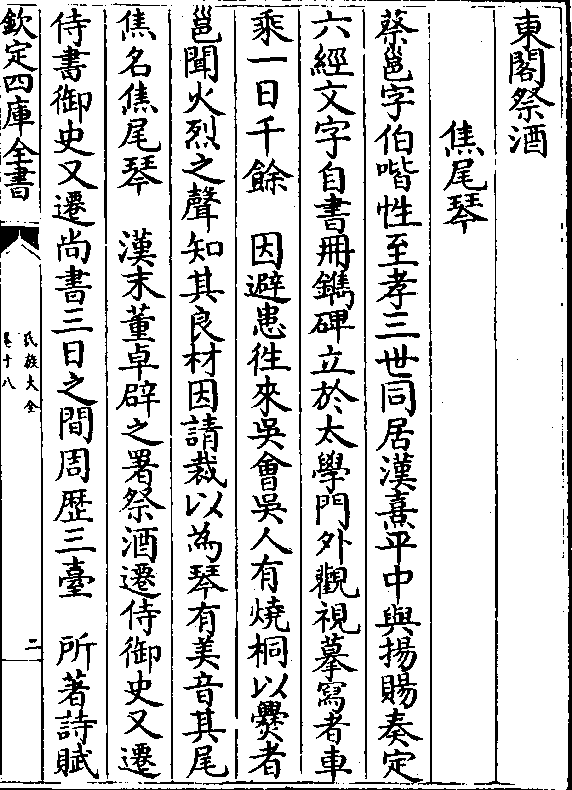 東閣祭酒
焦尾琴
蔡邕字伯喈性至孝三世同居漢熹平中與揚賜奏定
六經文字自書冊鐫碑立於太學門外觀視摹寫者車
乘一日千餘　因避患徃來吳會吳人有燒桐以爨者
邕聞火烈之聲知其良材因請裁以為琴有美音其尾
焦名焦尾琴　漢末董卓辟之署祭酒遷侍御史又遷
侍書御史又遷尚書三日之間周歴三臺　所著詩賦
欽定四庫全書
氏族大全
卷十八
二